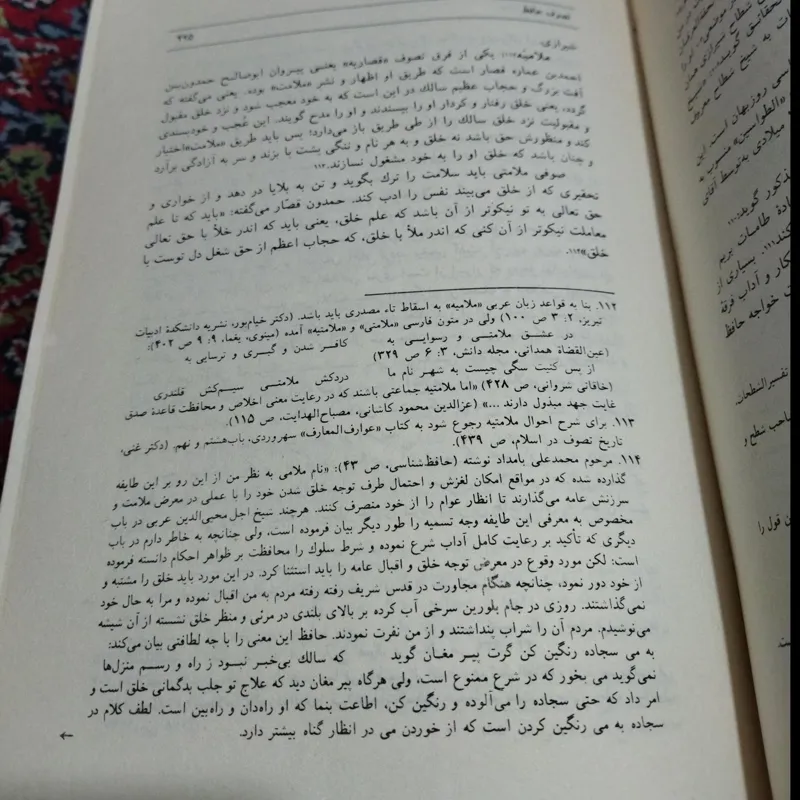 تصوف حافظ
۴۲۵
شیرازی.
ملامتیه۱۱۲: یکی از فرق تصوف «قصاریه» یعنی پیروان ابوصالح حمدون‌بن
احمدبن عماره قصار است که طریق او اظهار و نشر «ملامت» بوده. یعنی می‌گفته که
آفت بزرگ و حجاب عظیم سالك در این است که به خود معجب شود و نزد خلق مقبول
گردد، یعنی خلق رفتار و کردار او را بپسندند و او را مدح گویند. این عُجب و خودپسندی
و مقبولیت نزد خلق سالك را از طی طریق باز می‌دارد؛ پس باید طریق «ملامت» اختیار
کند و منظورش حق باشد نه خلق و به هر نام و ننگی پشت پا بزند و سر به آزادگی برآرد
و چنان باشد که خلق او را به خود مشغول نسازند.۱۱۳
صوفی ملامتی باید سلامت را ترك بگوید و تن به بلایا در دهد و از خواری و
تحقیری که از خلق می‌بیند نفس را ادب کند. حمدون قصّار می‌گفته: «باید که تا علم
حق تعالی به تو نیکوتر از آن باشد که علم خلق، یعنی باید که اندر خلأ با حق تعالی
معاملت نیکوتر از آن کنی که اندر ملأ با خلق، که حجاب اعظم از حق شغل دل توست با
خلق»۱۱۴
۱۱۲. بنا به قواعد زبان عربی «ملامیه» به اسقاط تاء مصدری باید باشد. (دکتر خیام‌پور، نشریه دانشکدهٔ ادبیات
تبریز، ۲: ۳ ص ۱۰۰) ولی در متون فارسی «ملامتی» و «ملامتیه» آمده (مینوی، یغما، ۹: ۹ ص ۴۰۲):
در عشق ملامتی و رسوایی به کافر شدن و گبری و ترسایی به
(عین‌القضاة همدانی، مجله دانش، ۳: ۶ ص ۳۲۹)
از بس کثیت سگی چیست به شهر نام ما دردکش ملامتی سیم‌کش قلندری
(خاقانی شروانی، ص ۴۲۸) «اما ملامتیه جماعتی باشند که در رعایت معنی اخلاص و محافظت قاعدهٔ صدق
غایت جهد مبذول دارند ...» (عزالدین محمود کاشانی، مصباح‌الهدایت، ص ۱۱۵).
۱۱۳. برای شرح احوال ملامتیه رجوع شود به کتاب «عوارف‌المعارف» سهروردی، باب‌هشتم و نهم. (دکتر غنی،
تاریخ تصوف در اسلام، ص ۴۳۹).
۱۱۴. مرحوم محمدعلی بامداد نوشته (حافظ‌شناسی، ص ۴۳): «نام ملامی به نظر من از این رو بر این طایفه
گذارده شده که در مواقع امکان لغزش و احتمال طرف توجه خلق شدن خود را با عملی در معرض ملامت و
سرزنش عامه می‌گذارند تا انظار عوام را از خود منصرف کنند. هرچند شیخ اجل محیی‌الدین عربی در باب
مخصوص به معرفی این طایفه وجه تسمیه را طور دیگر بیان فرموده است، ولی چنانچه به خاطر دارم در باب
دیگری که تأکید بر رعایت کامل آداب شرع نموده و شرط سلوك را محافظت بر ظواهر احکام دانسته فرموده
است: لکن مورد وقوع در معرض توجه خلق و اقبال عامه را باید استثنا کرد. در این مورد باید خلق را مشتبه و
از خود دور نمود، چنانچه هنگام مجاورت در قدس شریف رفته رفته مردم به من اقبال نموده و مرا به حال خود
نمی‌گذاشتند. روزی در جام بلورین سرخی آب کرده بر بالای بلندی در مرئی و منظر خلق نشسته از آن شیشه
می‌نوشیدم. مردم آن را شراب پنداشتند و از من نفرت نمودند. حافظ این معنی را با چه لطافتی بیان می‌کند:
به می سجاده رنگین کن گرت پیر مغان گوید که سالك بی‌خبر نبود ز راه و رسم منزل‌ها
نمی‌گوید می بخور که در شرع ممنوع است، ولی هرگاه پیر مغان دید که علاج تو جلب بدگمانی خلق است و
امر داد که حتی سجاده را می‌آلوده و رنگین کن، اطاعت بنما که او راه‌دان و راه‌بین است. لطف کلام در
سجاده به می رنگین کردن است که از خوردن می در انظار گناه بیشتر دارد.
←
شطاح شیرازی
تحقائق گویند
ات به شیخ شطاح معروف
«الطواسین» منسوب به
میلادی به‌توسط آقای
ذکور گوید:
ادهٔ طامات بریم
کند۱۱۱. بسیاری از
کار و آداب فرقهٔ
ت خواجه حافظ
تفسیرالشطحات،
صاحب شطح و
ن قول را